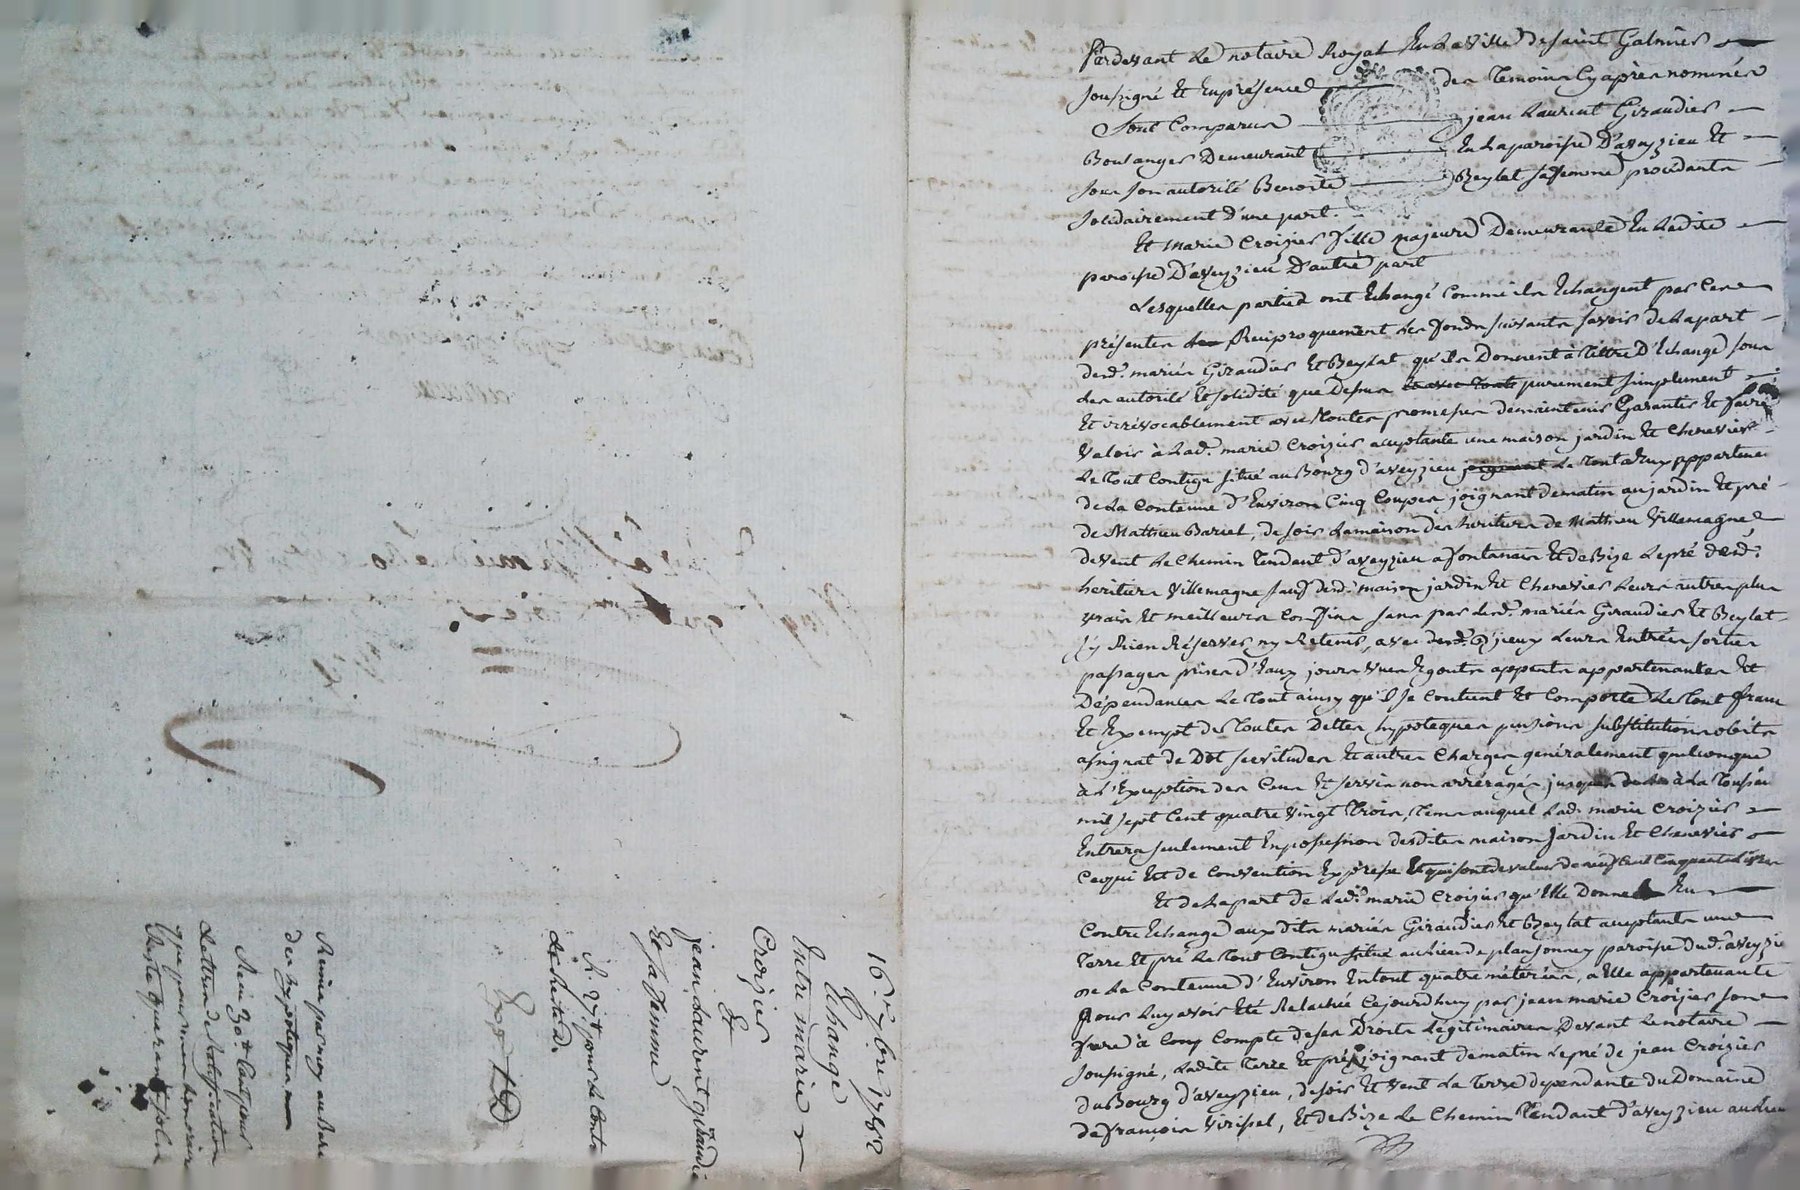 Pardevant Le notaire Royal En La Ville de saint Galmier
soussigné Et En présence des Temoins Cy après nommés
Sont Comparus jean Laurent Giraudier
Boulanger Demeurant En La paroisse D'aveyzieu Et
sous son autorité Benoite Beylat sa femme procédants
solidairement D'une part.
Et Marie Croizier fille majeure Demeurante En Ladite
paroisse D'aveyzieu D'autre part
Lesquelles parties ont Echangé Comme ils Echangent par Ces
présentes Réciproquement Les fonds suivants savoir de La part
desd. mariés Giraudier Et Beylat qu'ils Donnent à Titre D'Echange sous
Les autorité Et solidité que Dessus purement simplement
Et irrévocablement avec toutes promesses de maintenir Garantir Et faire
Valoir à Lad. marie Croizier acceptante une maison jardin Et Chenevier
Le Tout Contigu situé au Bourg d'aveyzieu joignant Le Tout à Eux appartenant
de La Contenue d'Environ Cinq Coupes joignant de matin au jardin Et pré
de Mathieu Bariel, de soir La maison des heritiers de Mathieu Villemagne
de Vent Le Chemin Tendant d'aveyzieu a fontanes Et de Bize Le pré desd.
heritiers Villemagne sauf desd. maison jardin Et Chenevier Leurs autres plus
vrais Et meilleurs Confins sans par Lesd. mariés Giraudier Et Beylat
s'y Rien Réserver ny Retenir, avec Leurs Entrées sorties
passages prises d'Eaux jours vues Egouts appents appartenantes Et
Dépendances Le Tout ainsy qu'il se Contient Et Comporte Le Tout franc
Et Exempt de Toutes Dettes hypoteques pensions substitutions obits
assignat de Dot servitudes Et autres Charges généralement quelconque
à L'Exception des Cens Et servis non arréragés jusques à La Toussaint
mil sept Cent quatre Vingt Trois, Tems auquel Lad. marie Croizier
Entrera seulement En possession desdites maison jardin Et Chenevier
Ce qui Est de Convention Expresse Et qui sont de valeur de neuf Cent Cinquante Livres
Et de La part de Lad. marie Croizier qu'Elle Donne En
Contre Echange aux dits mariés Giraudier Et Beylat acceptants une
Terre Et pré Le Tout Contigu situé au Lieu de plansonney paroisse dud. aveyzieu
de La Contenue d'Environ En tout quatre métérées, a Elle appartenante
pour Luy avoir Eté Relachée Cejourdhuy par jean marie Croizier son
frere à Comp Compte de ses Droits Légitimaires Devant Le notaire
soussigné, Ladite Terre Et pré joignant de matin Le pré de jean Croizier
du Bourg d'aveyzieu, de soir Et Vent La Terre dependante du Domaine
de françois Virisel, Et de Bize Le Chemin Tendant d'aveyzieu au Lieu
16 7bre 1782
Echange
Entre marie
Croizier
&
jean Laurent giraudier
Et sa femme
de Lestrad.
Remise par moy au Bureau
des hypoteques
Lettres de Ratification